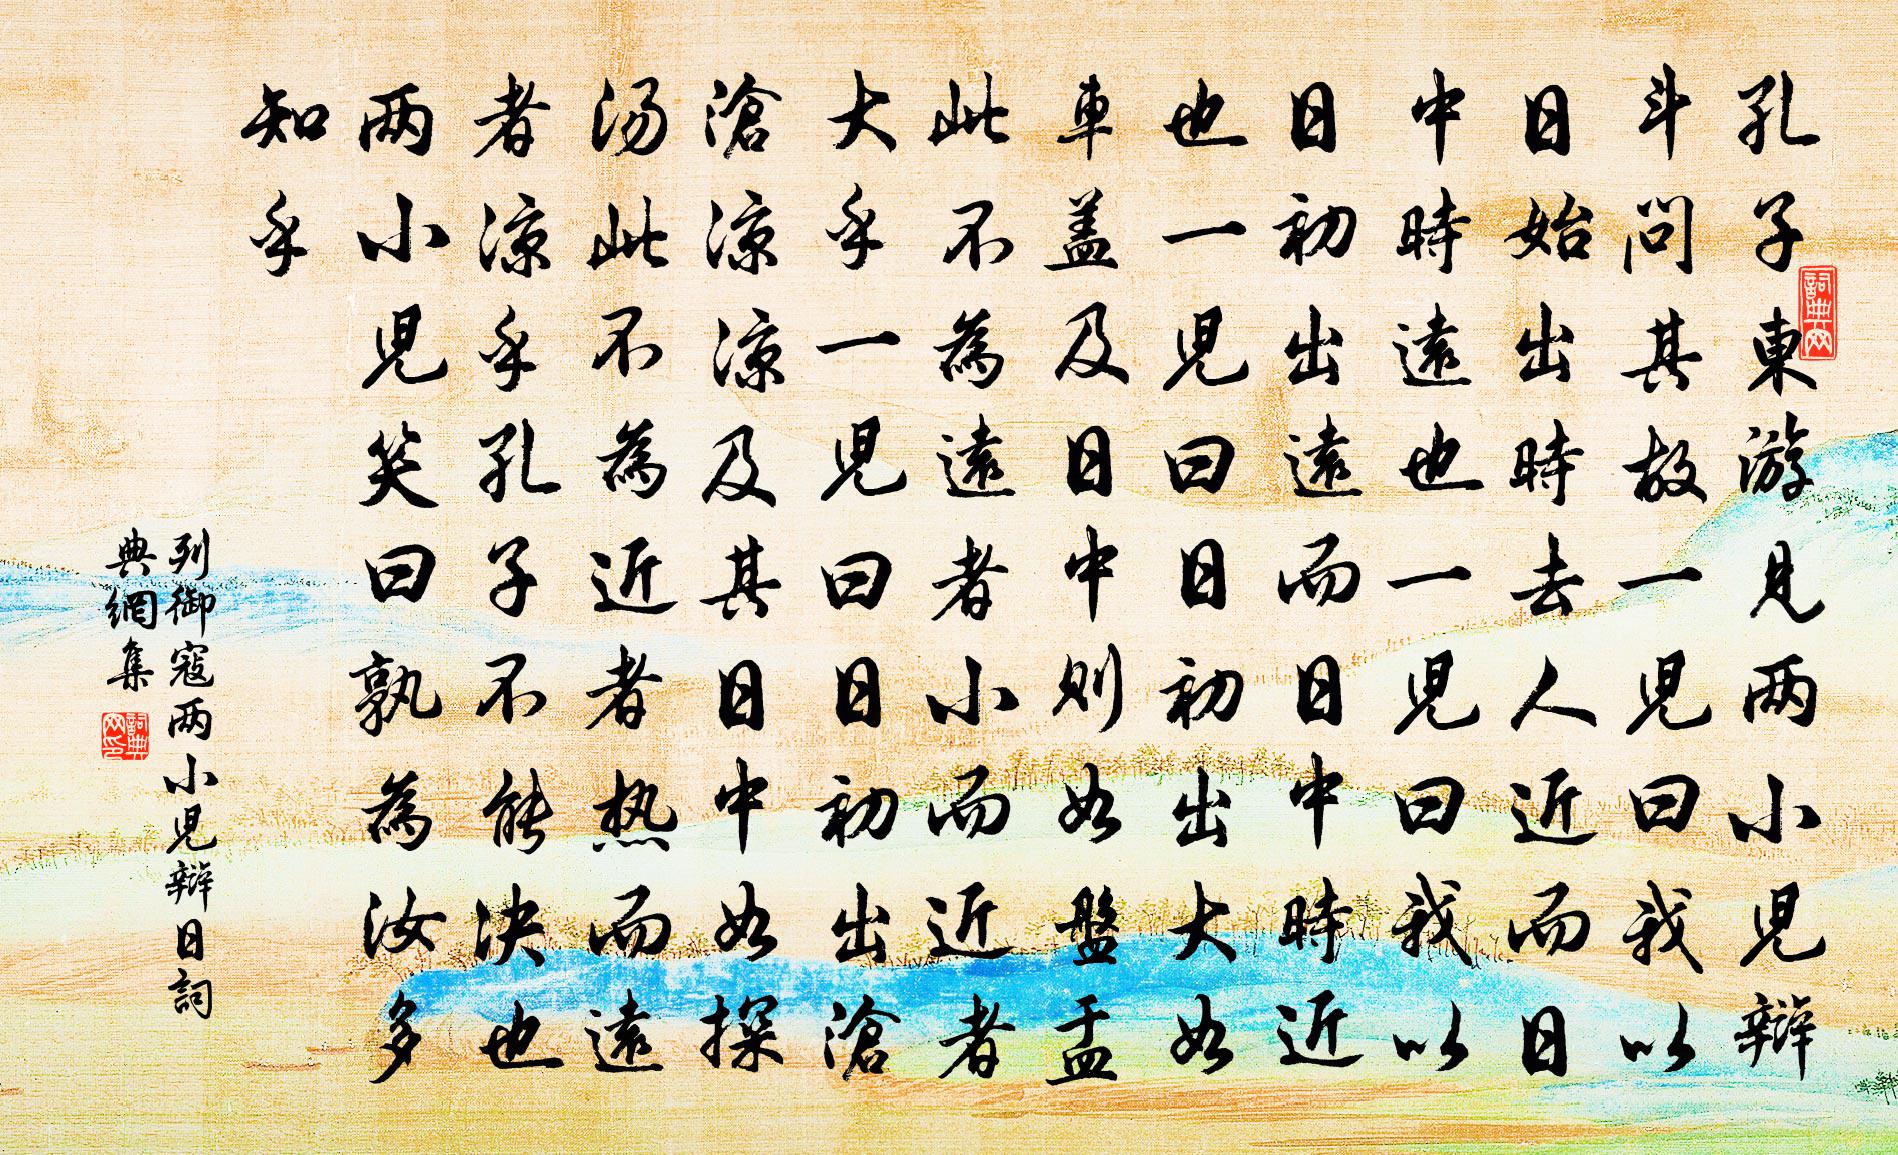 孔子東游見两小児辯
斗問其故一児曰我以
日始出時去人近而日
中時遠也一児曰我以
日初出遠而日中時近
也一児曰日初出大如
車盖及日中則如盤盂
此不為遠者小而近者
大乎一児曰日初出滄
滄涼涼及其日中如探
湯此不為近者热而遠
者涼乎孔子不能决也
两小児笑曰孰為汝多
知乎
列御寇两小児辯日詞
典網集
詞典网
詞典网印